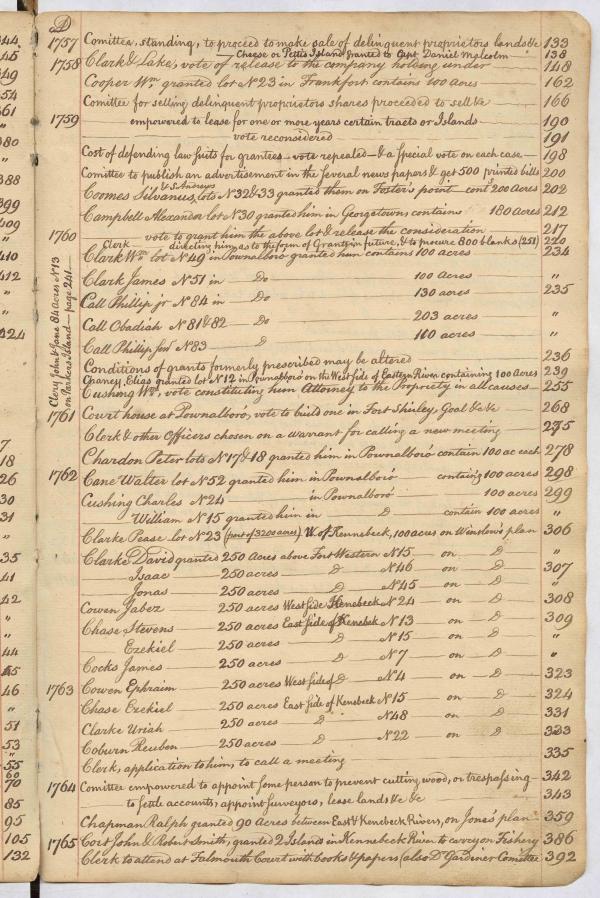 44
45
49
54
61
"
80
"
388
"
399
409
"
410
412
"
"
424
7
18
26
30
31
"
35
41
42
"
"
44
45
46
"
51
53
"
55
60
70
85
95
105
132
D
1757 Comittee, standing, to proceed to make sale of delinquent proprietors lands &c 133
Cheese or Pettis Island granted to Capt. Daniel Malcolm 138
1758 Clark & Lake, vote of release to the company holding under 148
Cooper Wm. granted lot No 23 in Frankfort contains 100 Acres 162
Comittee for selling delinquent proprietors shares proceeded to sell &c 166
1759 empowered to lease for one or more years certain tracts or Islands 190
vote reconsidered 191
Cost of defending law suits for grantees - vote repealed - & a special vote on each case 198
Comittee to publish an advertisement in the several news papers & get 500 printed bills 200
& S. Andrews
Coomes Silvanus, lots No 32 & 33 granted them on Foster's point - cont'g 200 Acres 202
Campbell Alexander lot No 30 granted him in Georgetown contains 180 Acres 212
1760 vote to grant him the above lot & release the consideration 217
Clerk directing him as to the form of Grants in future, & to procure 800 blanks (251) 220
Clark Wm. lot No 49 in Pownalboro granted him contains 100 acres 234
Clark James No 51 in Do 100 Acres "
Call Phillip jr No 84 in Do 130 acres 235
Call Obadiah No 81 & 82 Do 203 acres "
Call Phillip senr No 83 D 160 acres "
Clery John & Jane 84 Acres No 13
on Parkers Island - page 241
Conditions of grants formerly prescribed may be altered 236
Chaney, Elias granted lot No 12 in Pownalboro on the West side of Eastern River containing 100 Acres 239
Cushing Wm., vote constituting him Attorney to the Propriety in all causes 255
1761 Court house at Pownalboro, vote to build one in Fort Shirley, Goal &c &c 268
Clerk & other Officers chosen on a warrant for calling a new meeting 275
Chardon Peter lots No 17 & 18 granted him in Pownalboro contain 100 ac each 278
1762 Cane Walter lot No 52 granted him in Pownalboro containing 100 acres 298
Cushing Charles No 24 in Pownalboro 100 acres 299
William No 15 granted him in D contain 100 acres "
Clarke Pease lot No 23 (part of 3200 acres) W. of Kennebeck, 100 acres on Winslow's plan 306
Clarke David granted 250 Acres above Fort Western No 15 on D "
Isaac 250 acres D No 46 on D 307
Jonas 250 acres D No 45 on D "
Cowen Jabez 250 acres West side Kenebeck No 24 on D 308
Chase Stevens 250 acres East side of Kenebek No 13 on D 309
Ezekiel 250 acres D No 15 on D "
Cocks James 250 acres D No 7 on D "
1763 Cowen Ephraim 250 acres West side of D No 4 on D 323
Chase Ezekiel 250 acres East side of Kenebeck No 15 on D 324
Clarke Uriah 250 acres D No 48 on D 331
Coburn Reuben 250 acres D No 22 on D 333
Clerk, application to him, to call a meeting 335
1764 Comittee empowered to appoint some person to prevent cutting wood, or trespassing 342
to settle accounts, appoint surveyors, lease lands &c &c 343
Chapman Ralph granted 90 Acres between East & Kenebeck Rivers, on Jones' plan 359
1765 Cort John & Robert Smith, granted 2 Islands in Kennebeck River to carry on Fishery 386
Clerk to attend at Falmouth Court with books & papers (also Dr Gardiner Comittee 392